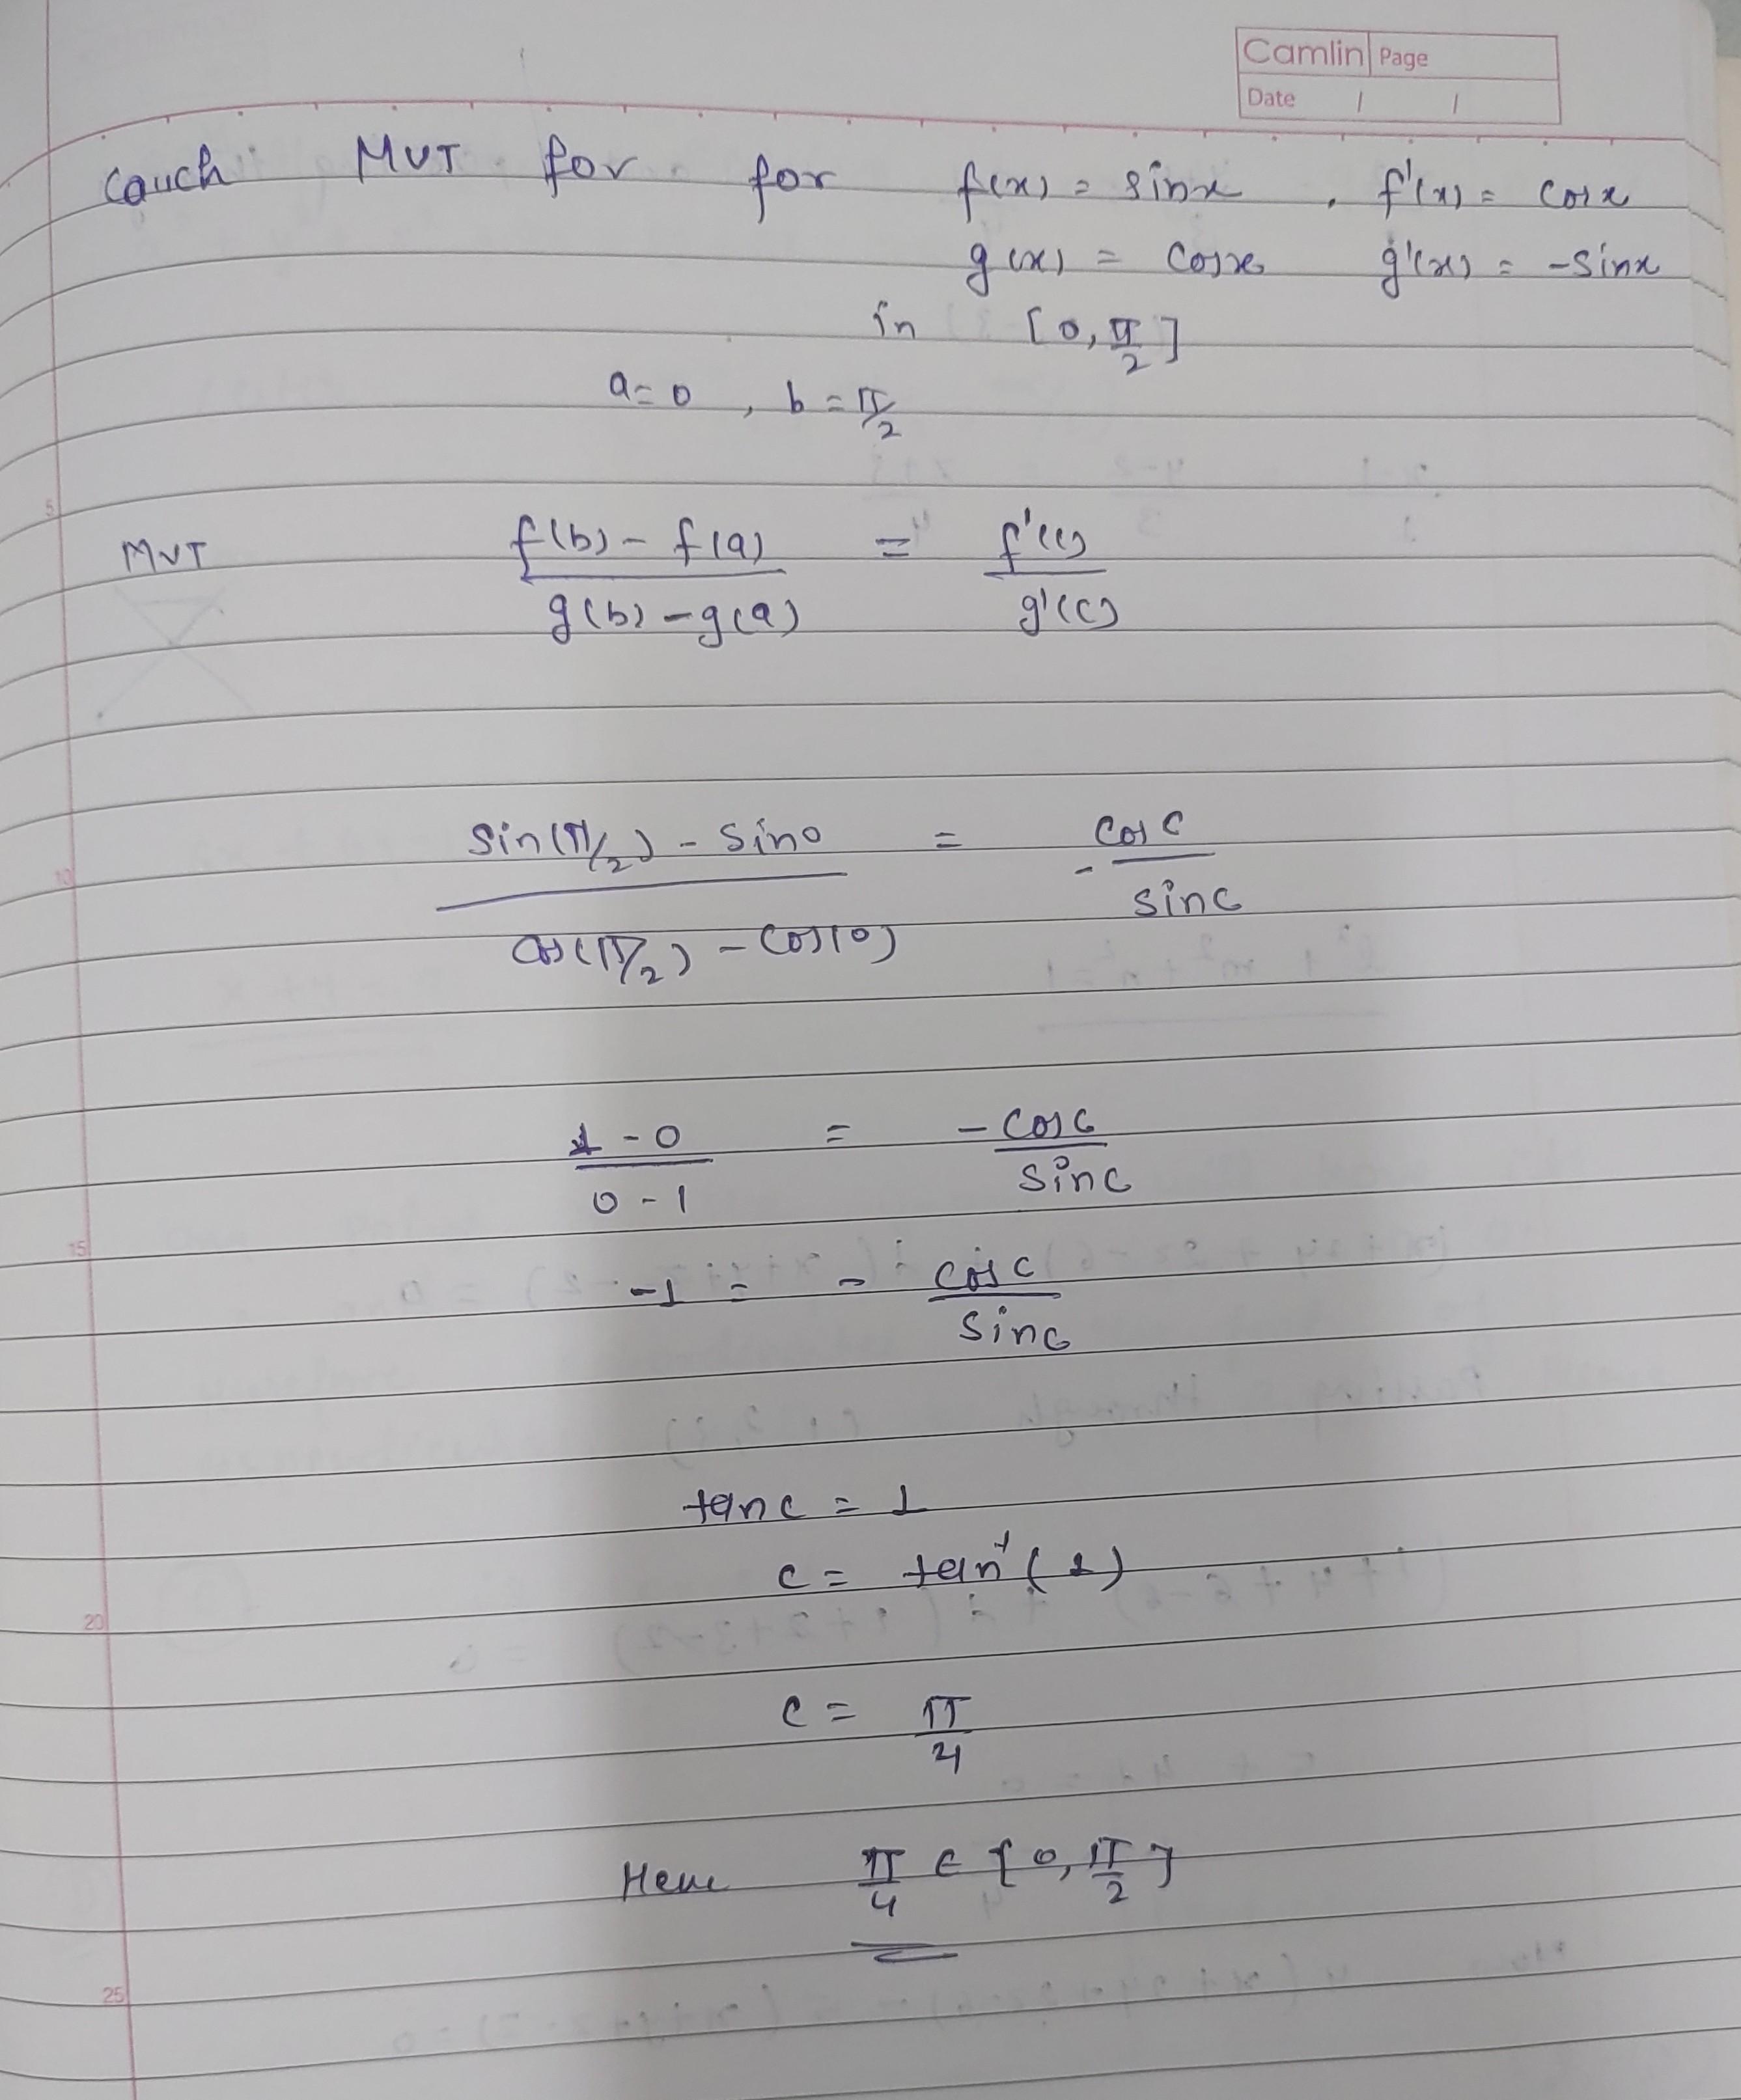 Camlin Page
Date / /
Cauch MVT for for f(x) = sinx , f'(x) = cosx
g(x) = cosx g'(x) = -sinx
in [0, π/2]
a=0 , b=π/2
5
MVT (f(b) - f(a))/(g(b) - g(a)) = f'(c)/g'(c)
10
(sin(π/2) - sin0)/(cos(π/2) - cos(0)) = - cos c/sinc
(1 - 0)/(0 - 1) = - cosc/sinc
15
-1 = - cosc/sinc
tanc = 1
c = tan⁻¹(1)
20
c = π/4
Here π/4 ∈ [0, π/2]
25